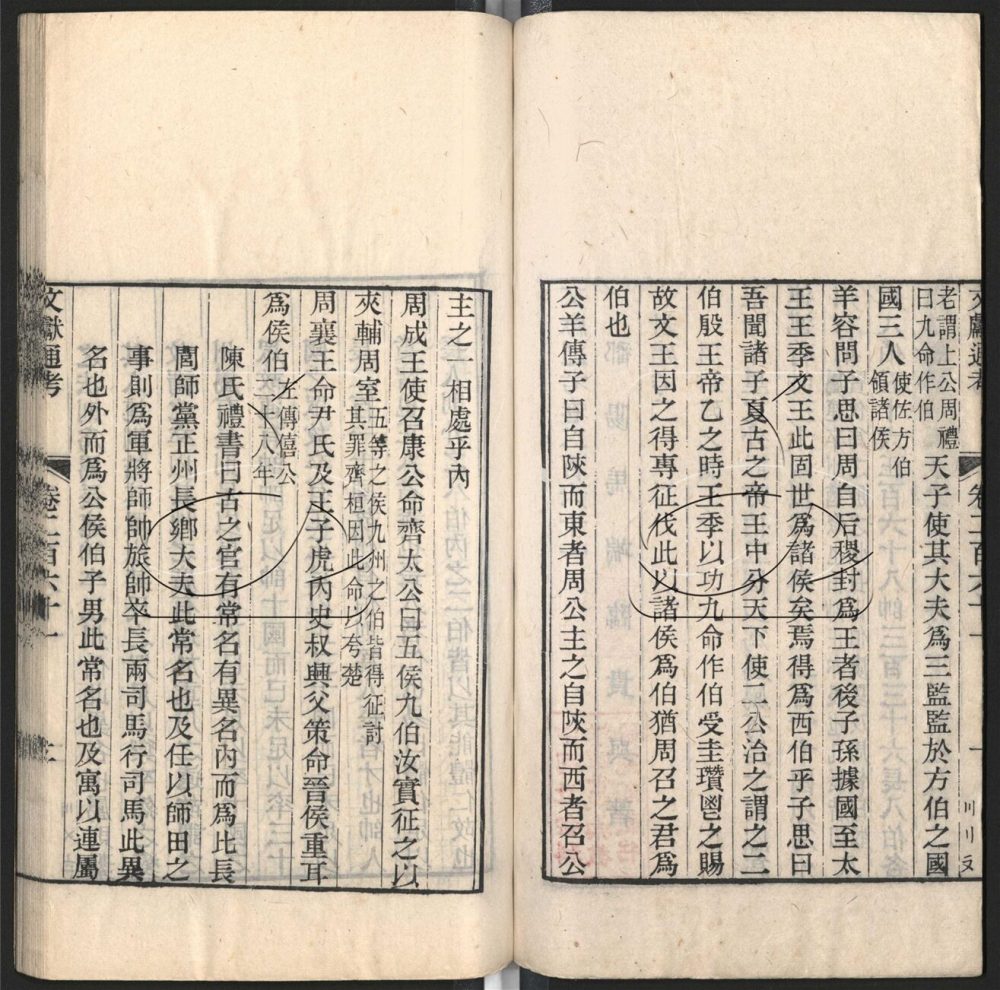 文獻通考 卷二百六十一
老謂上公周禮
曰九命作伯
天子使其大夫為三監監於方伯之國
國三人
使佐方伯
領諸侯
羊容問子思曰周自后稷封為王者後子孫據國至太
王王季文王此固世為諸侯矣焉得為西伯乎子思曰
吾聞諸子夏古之帝王中分天下使二公治之謂之二
伯殷王帝乙之時王季以功九命作伯受圭瓚鬯之賜
故文王因之得專征伐此以諸侯為伯猶周召之君為
伯也
公羊傳子曰自陜而東者周公主之自陜而西者召公
主之一相處乎內
周成王使召康公命齊太公曰五侯九伯汝實征之以
夾輔周室
五等之侯九州之伯皆得征討
其罪齊桓因此命以夸楚
周襄王命尹氏及王子虎內史叔興父策命晉侯重耳
為侯伯
左傳僖公
二十八年
陳氏禮書曰古之官有常名有異名內而為比長
閭師黨正州長鄉大夫此常名也及任以師田之
事則為軍將師帥旅帥卒長兩司馬行司馬此異
名也外而為公侯伯子男此常名也及寓以連屬
文獻通考 卷二百六十一